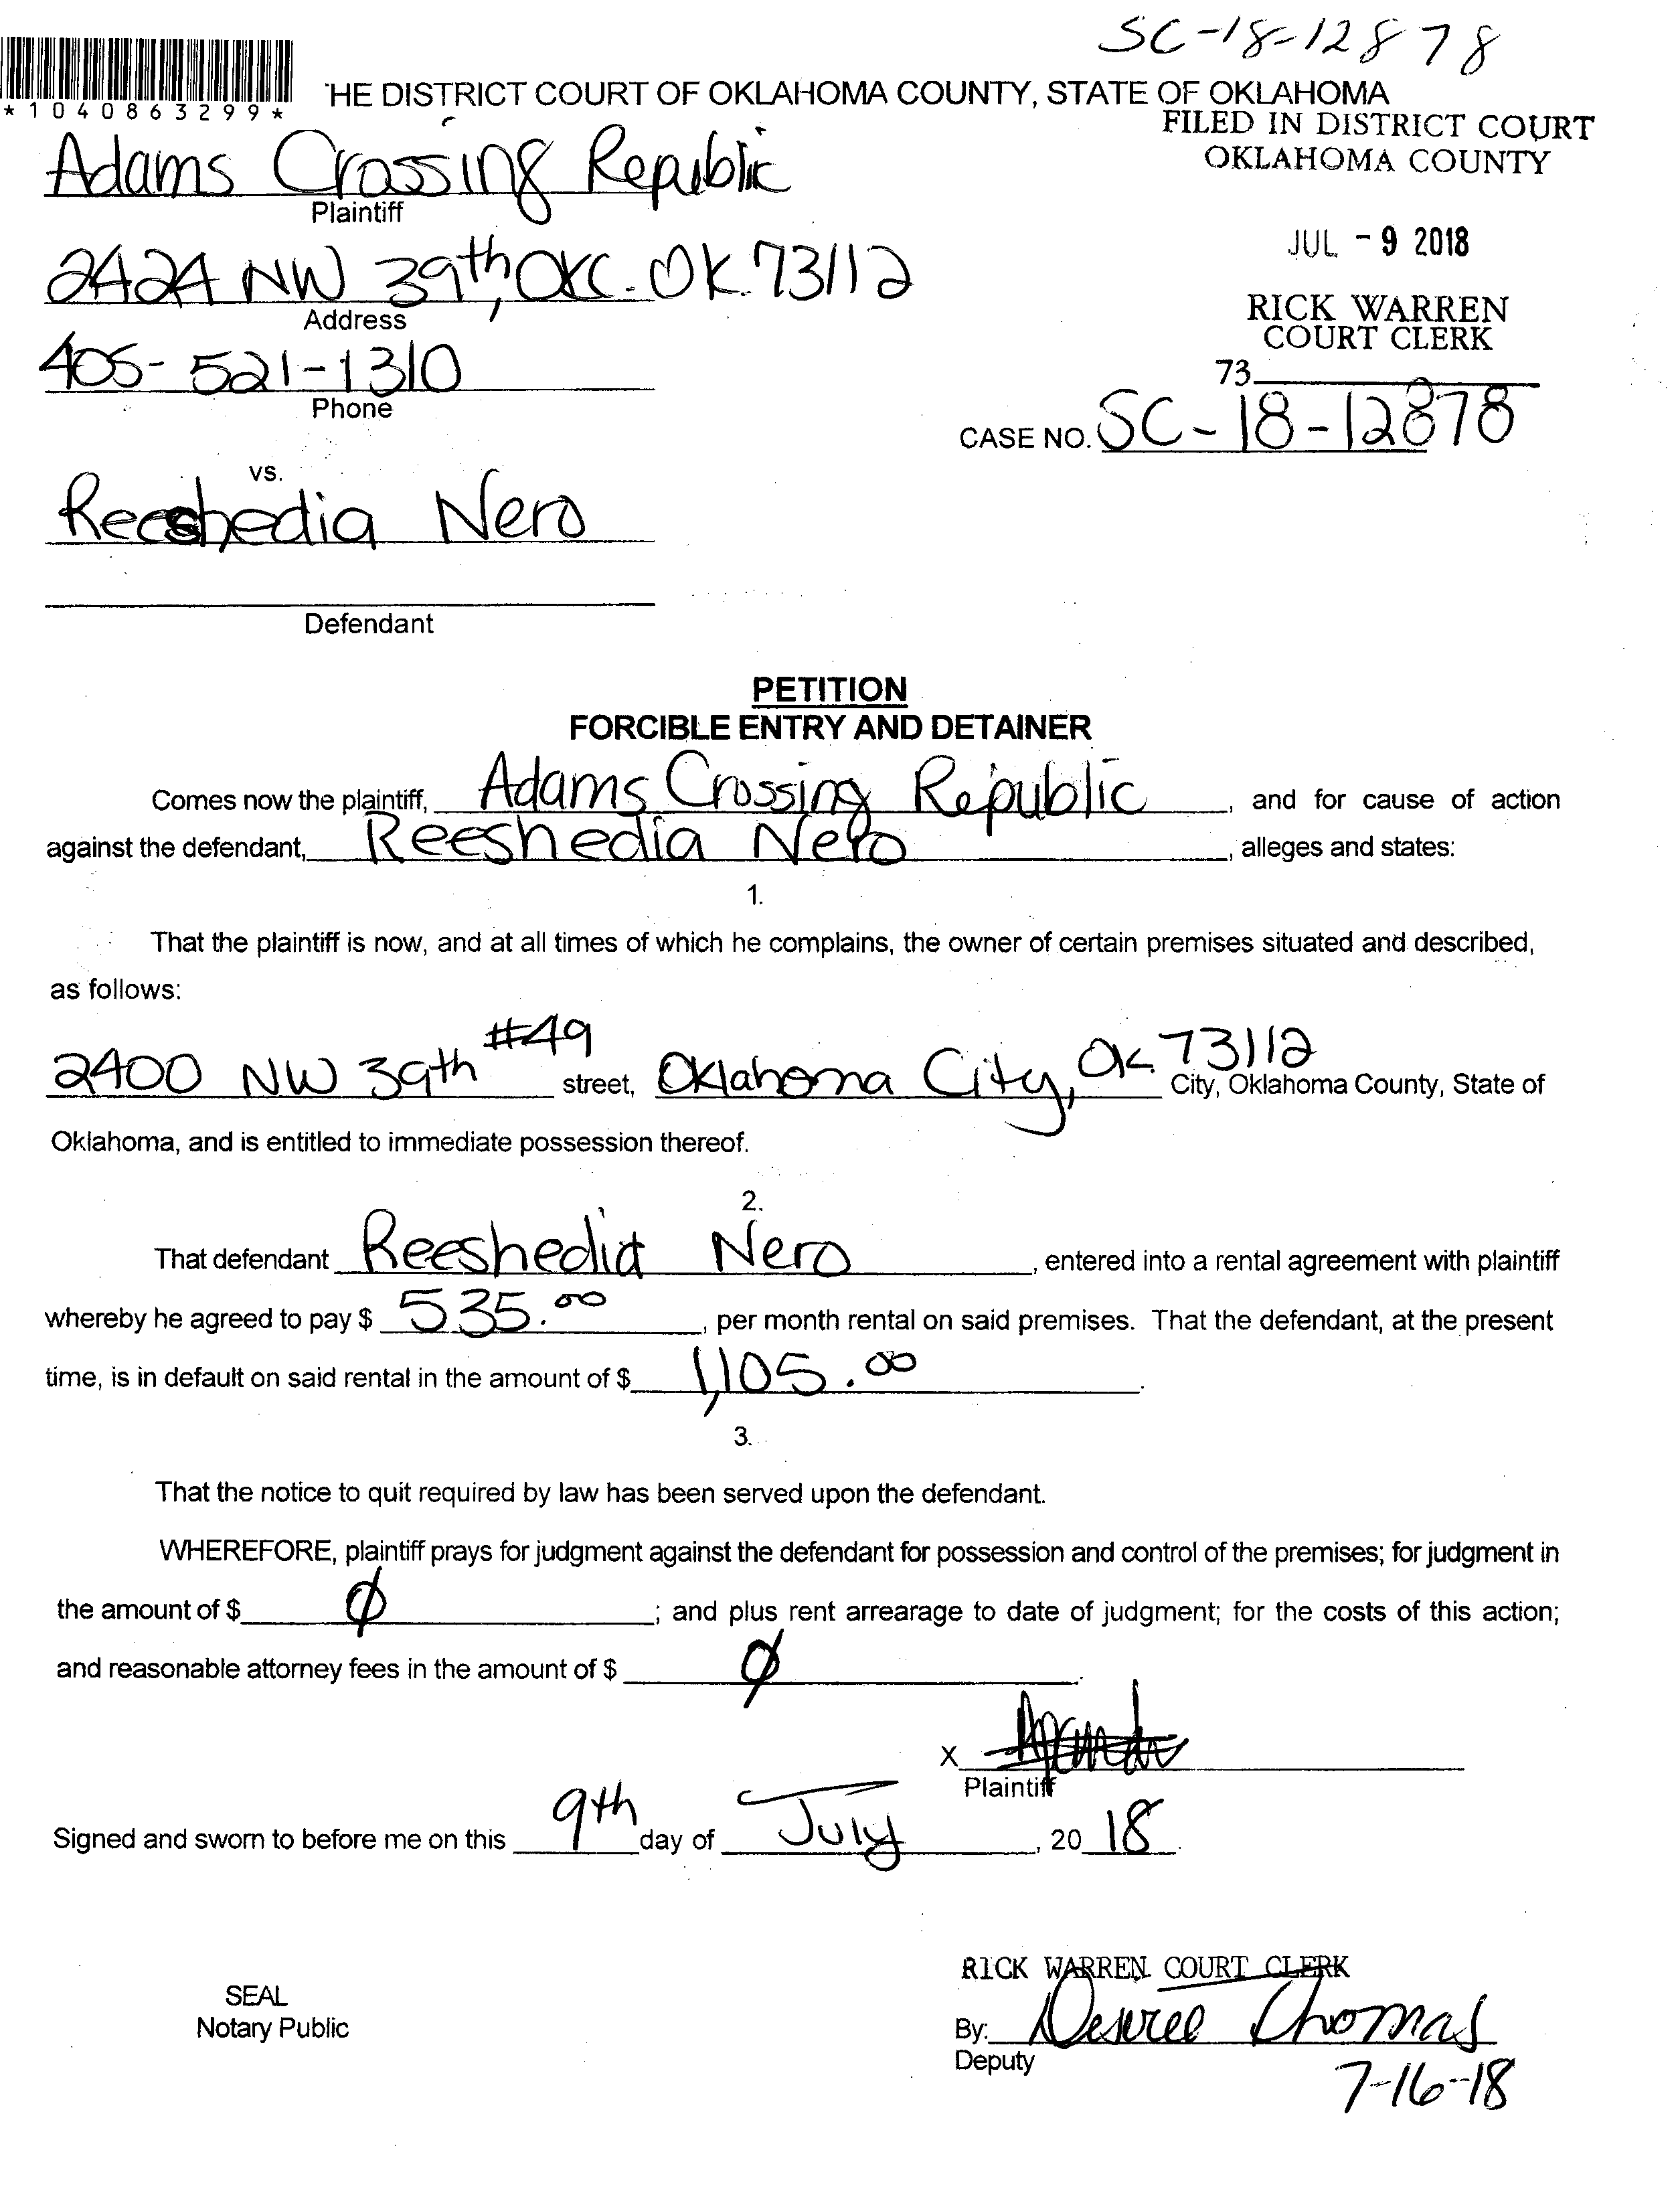 SC-18-12878
*1040863299*
'HE DISTRICT COURT OF OKLAHOMA COUNTY, STATE OF OKLAHOMA
FILED IN DISTRICT COURT
OKLAHOMA COUNTY
Adams Crossing Republic
Plaintiff
JUL - 9 2018
2424 NW 39th, OKC. OK. 73112
Address
RICK WARREN
COURT CLERK
405-521-1310
Phone
73
CASE NO. SC-18-12878
vs.
Reeshedia Nero
Defendant
PETITION
FORCIBLE ENTRY AND DETAINER
Comes now the plaintiff, Adams Crossing Republic, and for cause of action
against the defendant, Reeshedia Nero, alleges and states:
1.
That the plaintiff is now, and at all times of which he complains, the owner of certain premises situated and described,
as follows:
2400 NW 39th #49 street, Oklahoma City, OK 73112 City, Oklahoma County, State of
Oklahoma, and is entitled to immediate possession thereof.
2.
That defendant Reeshedia Nero, entered into a rental agreement with plaintiff
whereby he agreed to pay $ 535.00, per month rental on said premises. That the defendant, at the present
time, is in default on said rental in the amount of $ 1,105.00.
3.
That the notice to quit required by law has been served upon the defendant.
WHEREFORE, plaintiff prays for judgment against the defendant for possession and control of the premises; for judgment in
the amount of $ 0; and plus rent arrearage to date of judgment; for the costs of this action;
and reasonable attorney fees in the amount of $ 0.
X
Plaintiff
Signed and sworn to before me on this 9th day of July, 2018.
RICK WARREN COURT CLERK
SEAL
Notary Public
By: Desiree Thomas
Deputy
7-16-18